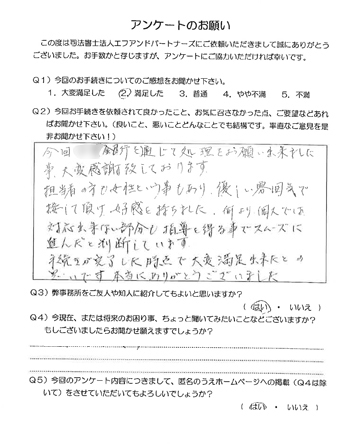 アンケートのお願い
この度は司法書士法人エフアンドパートナーズにご依頼いただきまして誠にありがとう
ございました。お手数かと存じますが、アンケートにご協力いただければ幸いです。
Q1）今回のお手続きについてのご感想をお聞かせ下さい。
1．大変満足した　2．満足した　3．普通　4．やや不満　5．不満
Q2）今回お手続きを依頼されて良かったこと、お気に召さなかった点、ご要望などあれ
ばお聞かせ下さい。（良いこと、悪いことどんなことでも結構です。率直なご意見を是
非お聞かせ下さい！）
今回 銀行を通じて処理をお願い出来ました
事、大変感謝致しております
担当の方も女性という事もあり、優しい雰囲気で
接して頂け、好感を持ちました、何より個人では
対応出来ない部分も指導を得る事でスムーズに
進んだと判断しています
手続きが完了した時点で大変満足出来たとの
思いです 本当にありがとうございました
Q3）弊事務所をご友人や知人に紹介してもよいと思いますか？
（ はい ・ いいえ ）
Q4）今現在、または将来のお困り事、ちょっと聞いてみたいことなどございますか？
もしございましたらお聞かせ願えますでしょうか？
Q5）今回のアンケート内容につきまして、匿名のうえホームページへの掲載（Q4は除
いて）をさせていただいてもよろしいでしょうか？
（ はい ・ いいえ ）